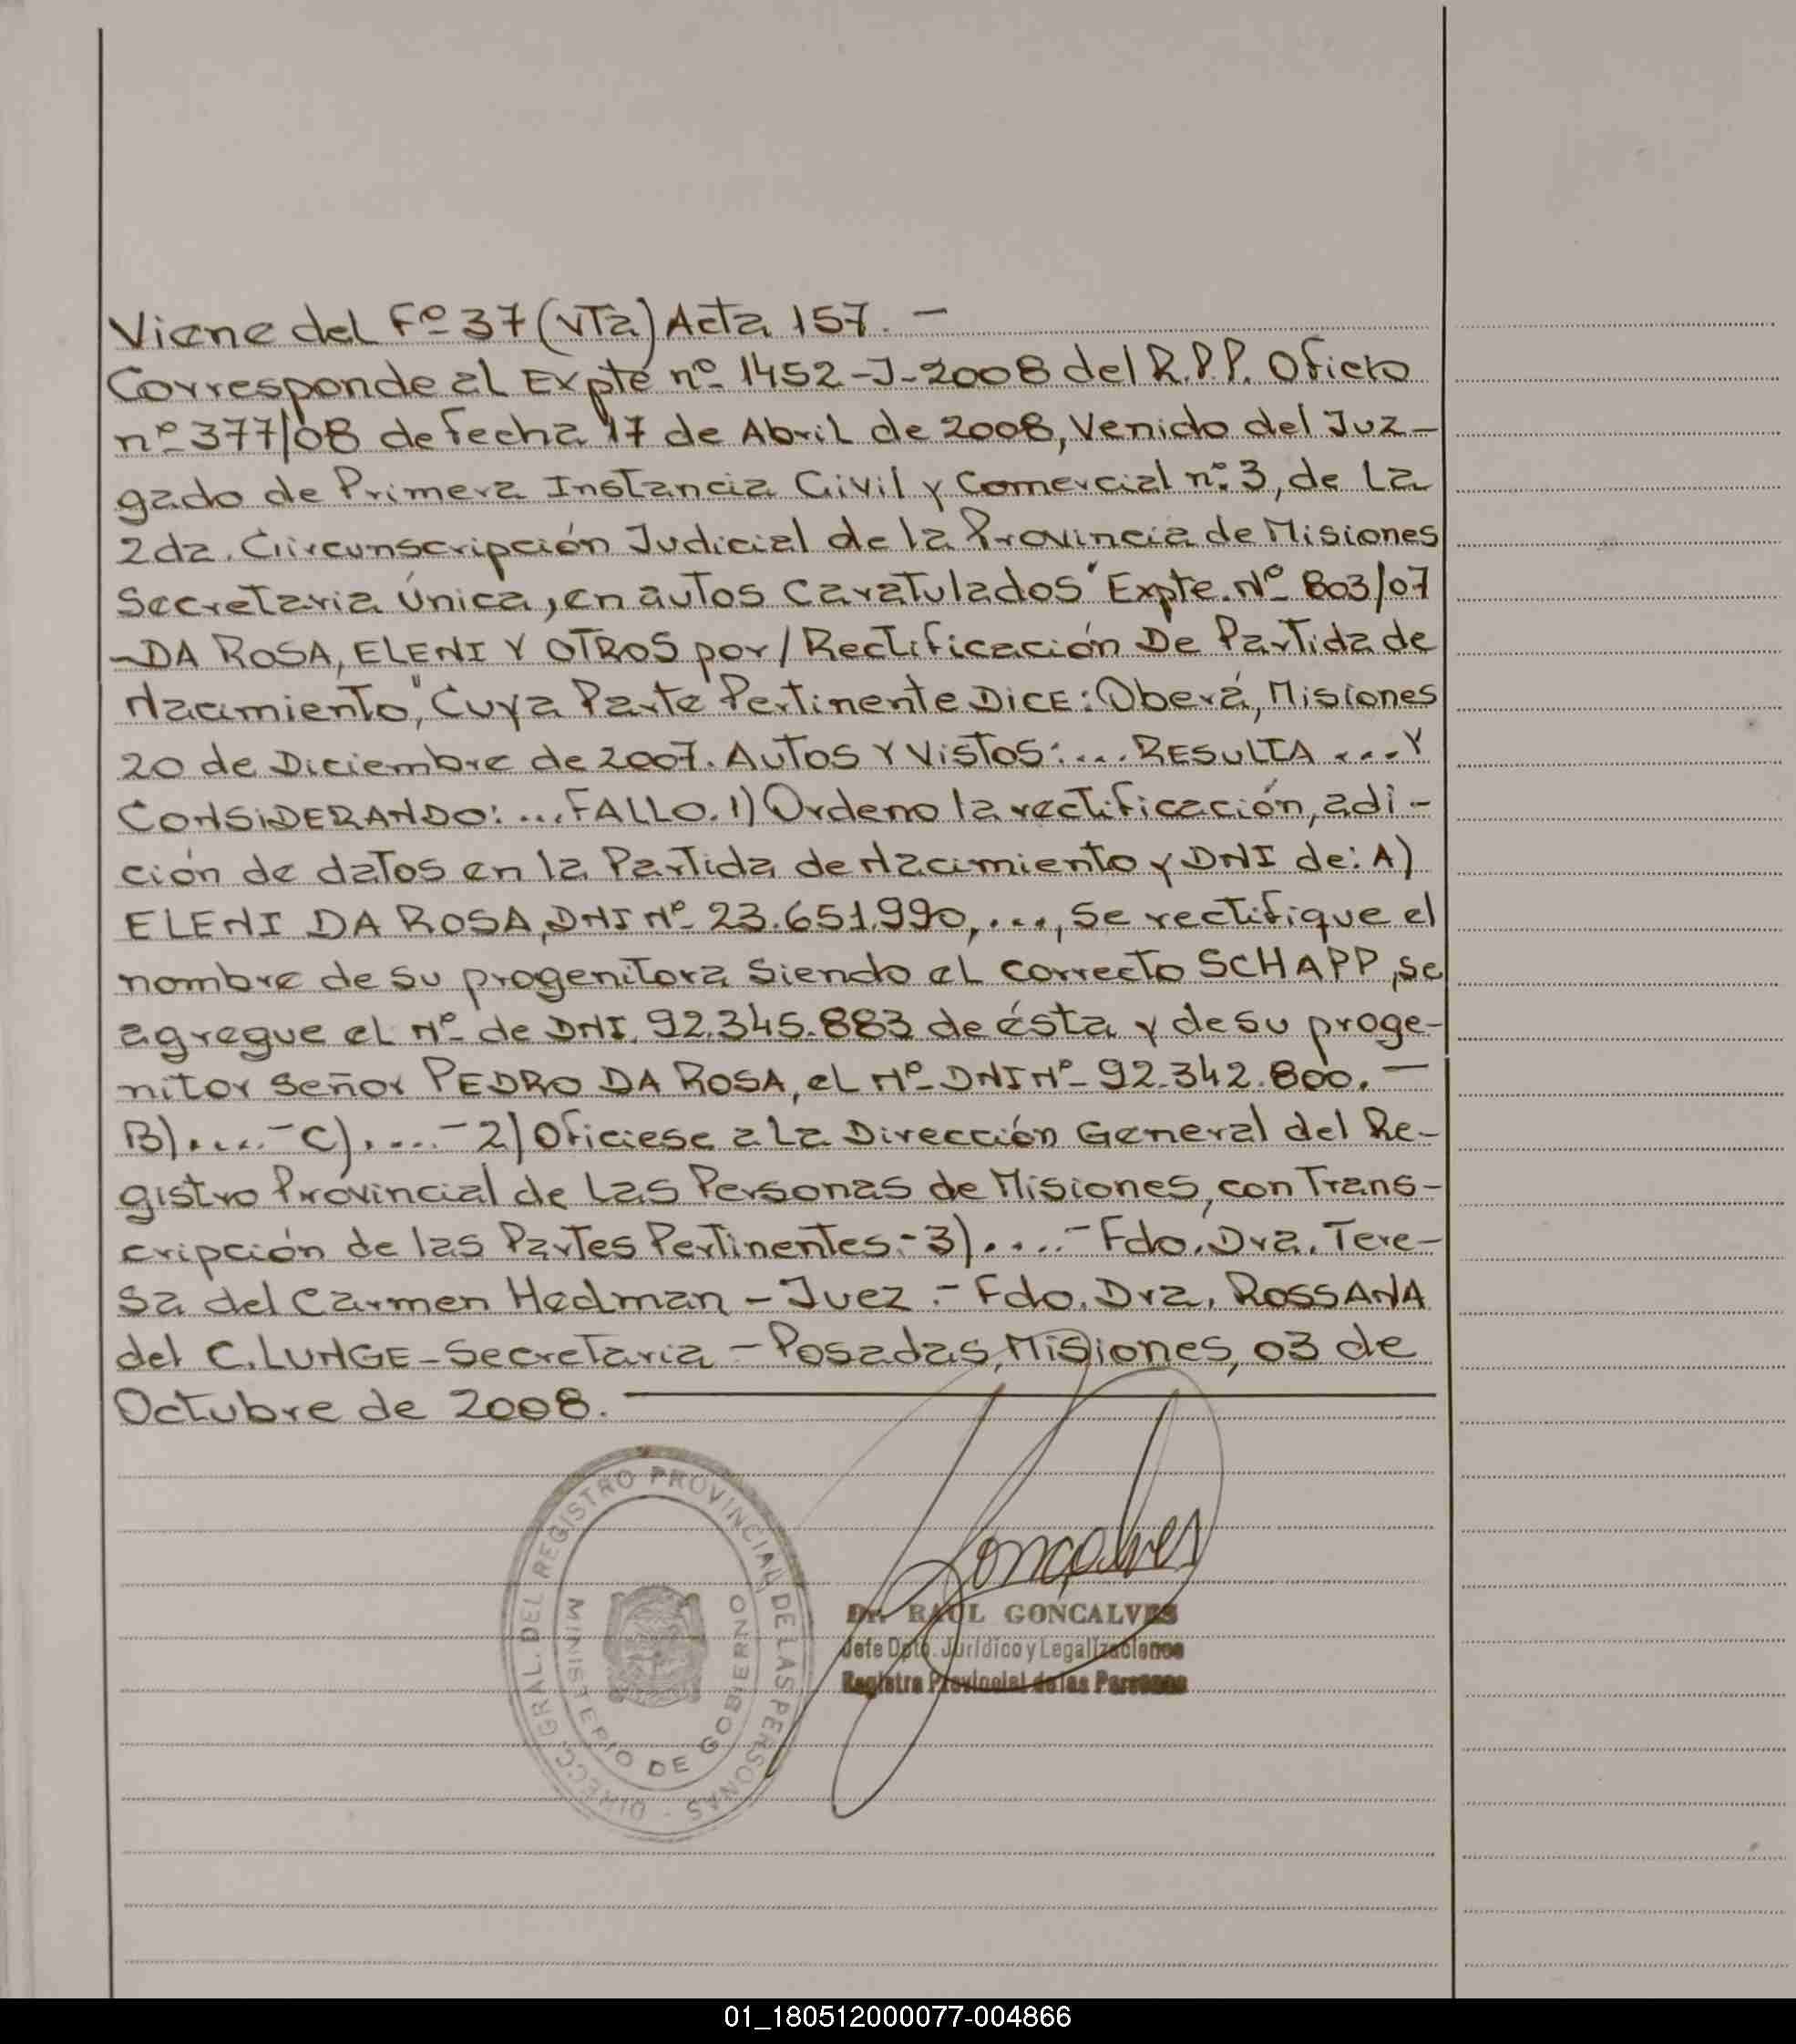 Viene del Fº 37 (vTa) Acta 157. -
Corresponde al Expte nº 1452-J-2008 del R.P.P. Oficio
nº 377/08 de fecha 17 de Abril de 2008, Venido del Juz-
gado de Primera Instancia Civil y Comercial nº 3, de La
2da. Circunscripción Judicial de la Provincia de Misiones
Secretaria Única, en autos Caratulados "Expte. Nº 803/07
-DA ROSA, ELENI Y OTROS por/Rectificación De Partida de
Nacimiento", Cuya Parte Pertinente DICE: Oberá, Misiones
20 de Diciembre de 2007. AUTOS Y VISTOS: .... RESULTA .... Y
CONSIDERANDO: ... FALLO. 1) Ordeno la rectificación, adi-
ción de datos en la Partida de Nacimiento y DNI de: A)
ELENI DA ROSA, DNI Nº 23.651.990, ...., Se rectifique el
nombre de su progenitora Siendo el correcto SCHAPP, se
agregue el Nº de DNI. 92.345.883 de ésta y de su proge-
nitor Señor PEDRO DA ROSA, el Nº DNI Nº 92.342.800. -
B).... - C).... - 2) Ofíciese a La Dirección General del Re-
gistro Provincial de Las Personas de Misiones, con Trans-
cripción de las Partes Pertinentes.- 3).... - Fdo. Dra. Tere-
sa del Carmen Hedman - Juez. - Fdo. Dra. ROSSANA
del C. LUNGE - Secretaria - Posadas, Misiones, 03 de
Octubre de 2008.
DIRECC. GRAL. DEL REGISTRO PROVINCIAL DE LAS PERSONAS -
MINISTERIO DE GOBIERNO
Goncalves
Dr. RAUL GONCALVES
Jefe Dpto. Jurídico y Legalizaciones
Registro Provincial de las Personas
01_180512000077-004866